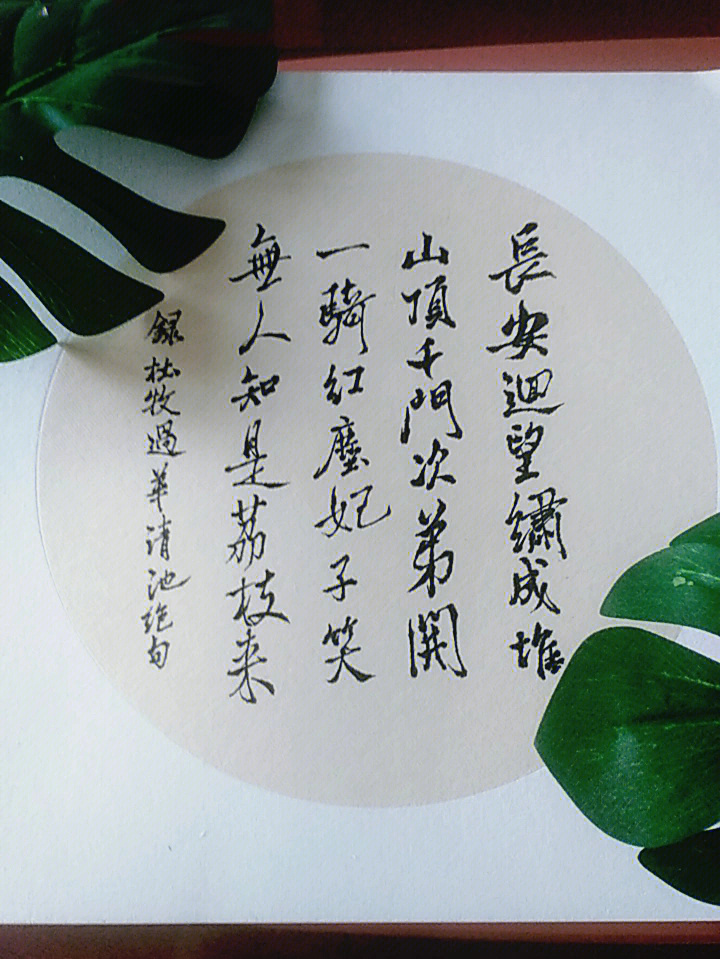 長安迴望繡成堆
山頂千門次弟開
一騎紅塵妃子笑
無人知是荔枝来
録杜牧過華清池绝句